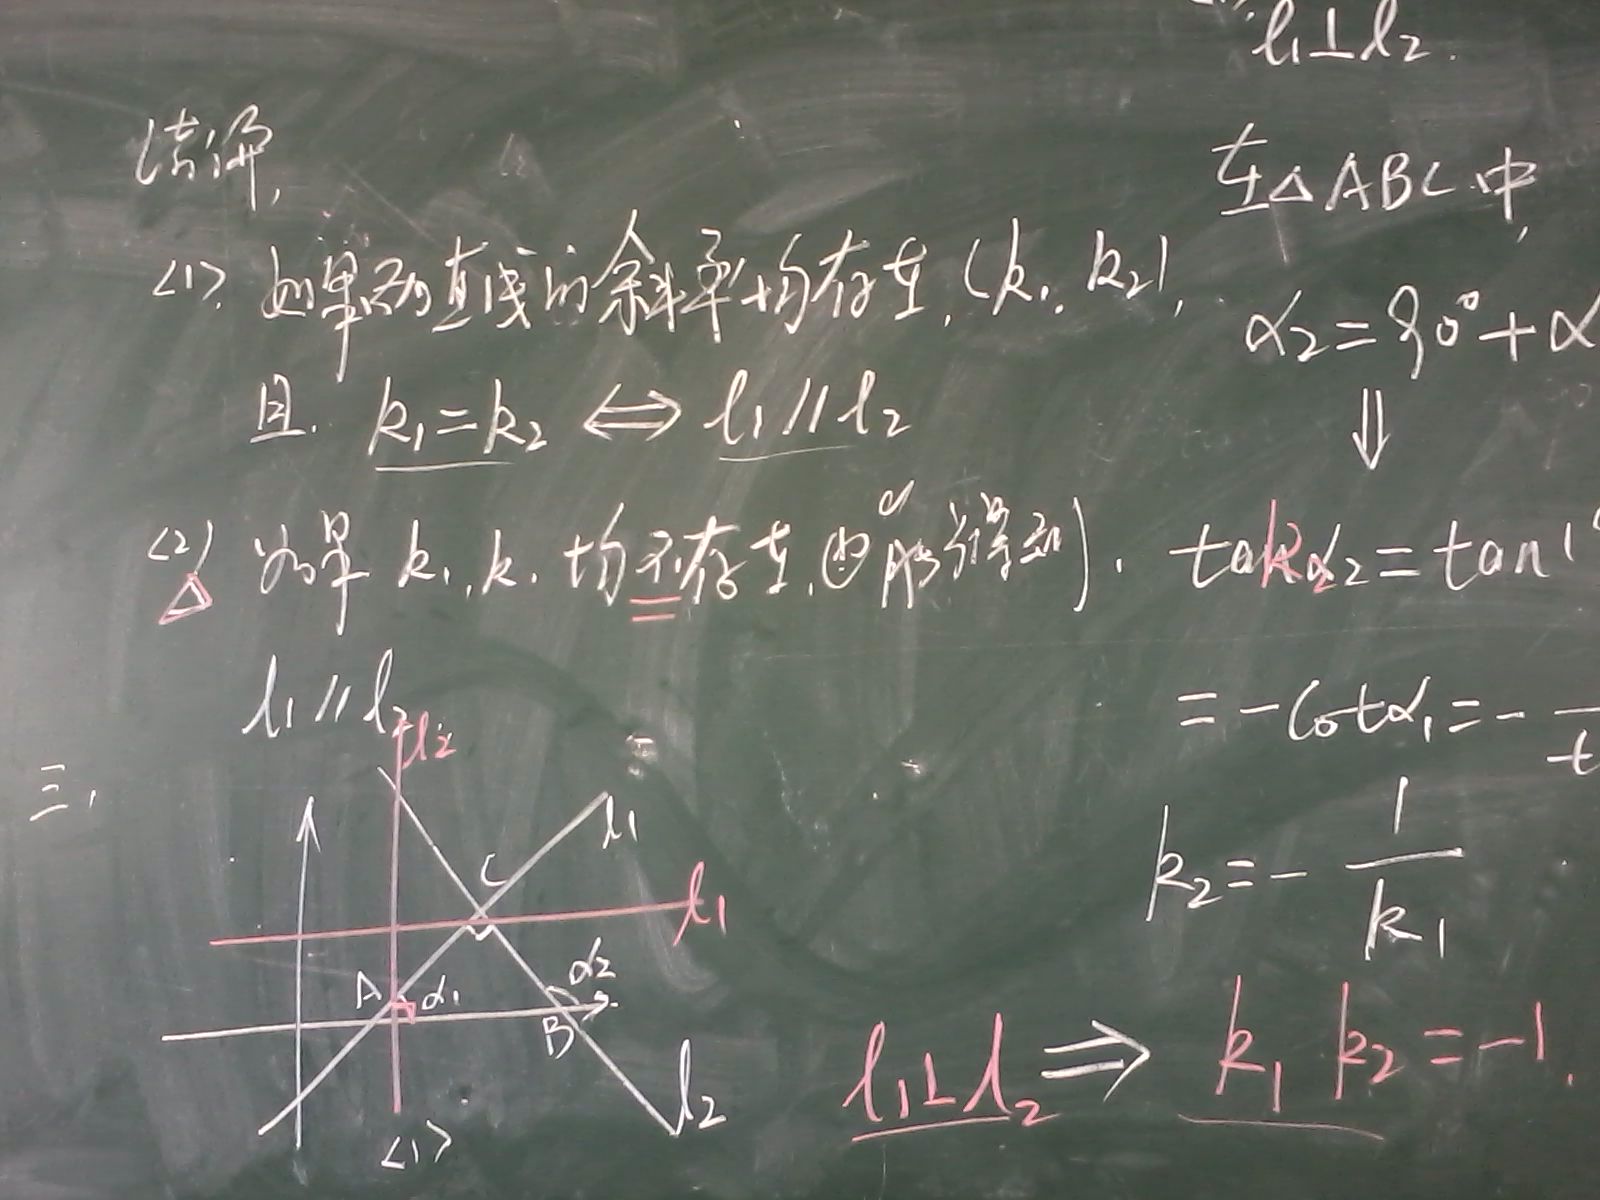 结论,
<1>. 如果两直线的斜率均存在,(k₁, k₂),
且. k₁=k₂ ⟺ l₁∥l₂
<2> 如果 k₁,k. 均不存在,
l₁∥l₂
三,
l₂
l₁
C
l₁
A
α₁
α₂
B
l₂
<1>
l₁⊥l₂.
在△ABC中,
α₂=90°+α
⇓
tanα₂=tan(
=-cotα₁=-
k₂=-1/k₁
l₁⊥l₂ ⟹ k₁ k₂=-1.